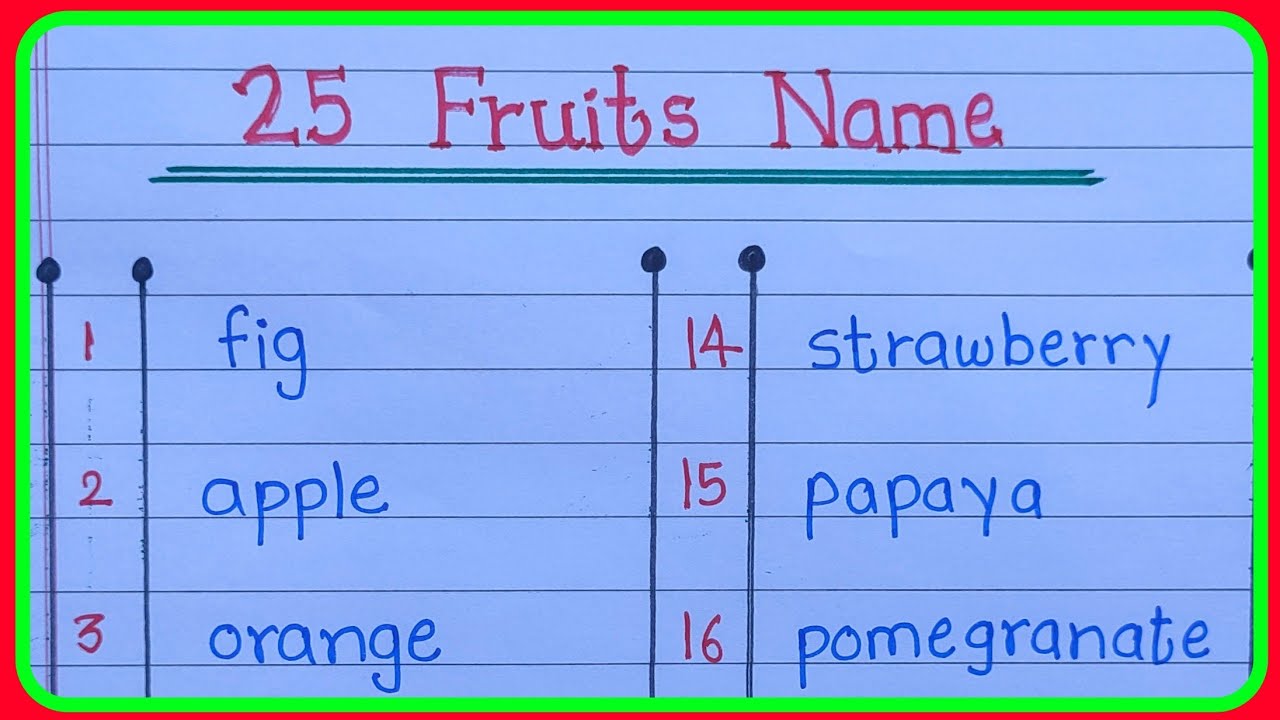 25 Fruits Name
1 fig
2 apple
3 orange
14 strawberry
15 papaya
16 pomegranate